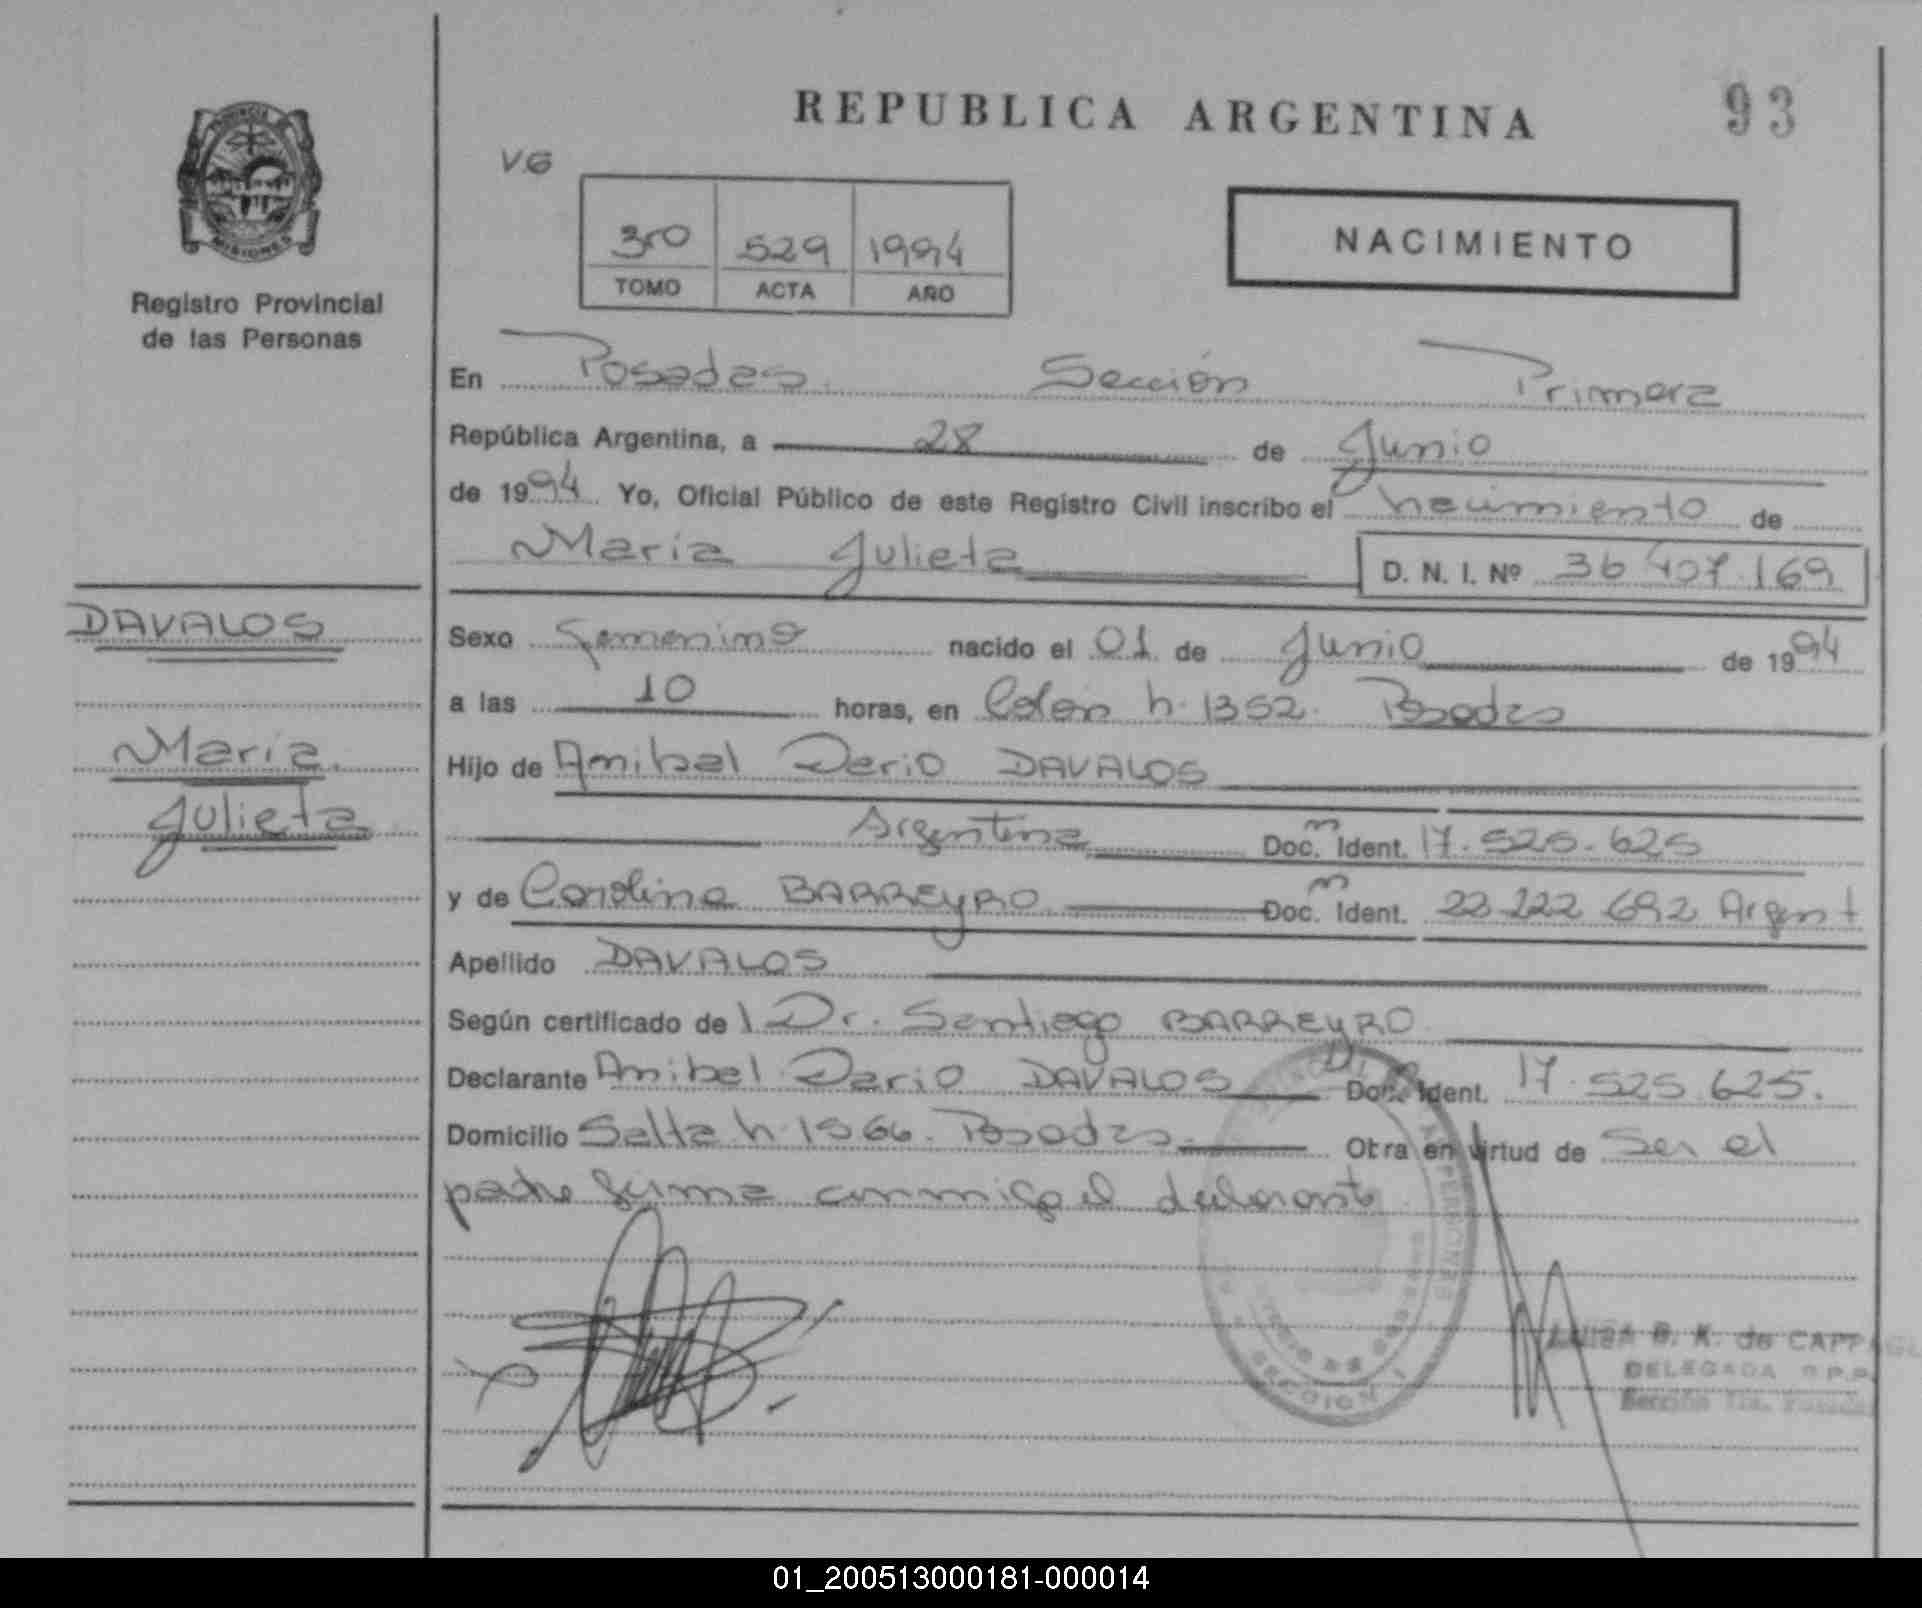 REPUBLICA ARGENTINA
93
PROVINCIA
MISIONES
Registro Provincial
de las Personas
VG
3ro 529 1994
TOMO ACTA AÑO
NACIMIENTO
En Posadas Sección Primera
República Argentina, a 28 de Junio
de 1994 Yo, Oficial Público de este Registro Civil inscribo el nacimiento de
María Julieta D. N. I. Nº 36 407.169
DAVALOS
María
Julieta
Sexo femenino nacido el 01 de Junio de 1994
a las 10 horas, en Colón n. 1352. Posadas
Hijo de Anibal Dario DAVALOS
Argentina Doc.m Ident. 17.525.625
y de Carolina BARREYRO Doc.m Ident. 22.222.692 Argent
Apellido DAVALOS
Según certificado de l Dr. Santiago BARREYRO
Declarante Anibal Dario DAVALOS Doc. Ident. 17.525.625.
Domicilio Salta n. 1566. Posadas. Otra en virtud de ser el
padre firma conmigo el declarante.
SECCION 1
B. K. de CAPPAGL
DELEGADA R.P.P.
Sección 1ra. Posadas
01_200513000181-000014